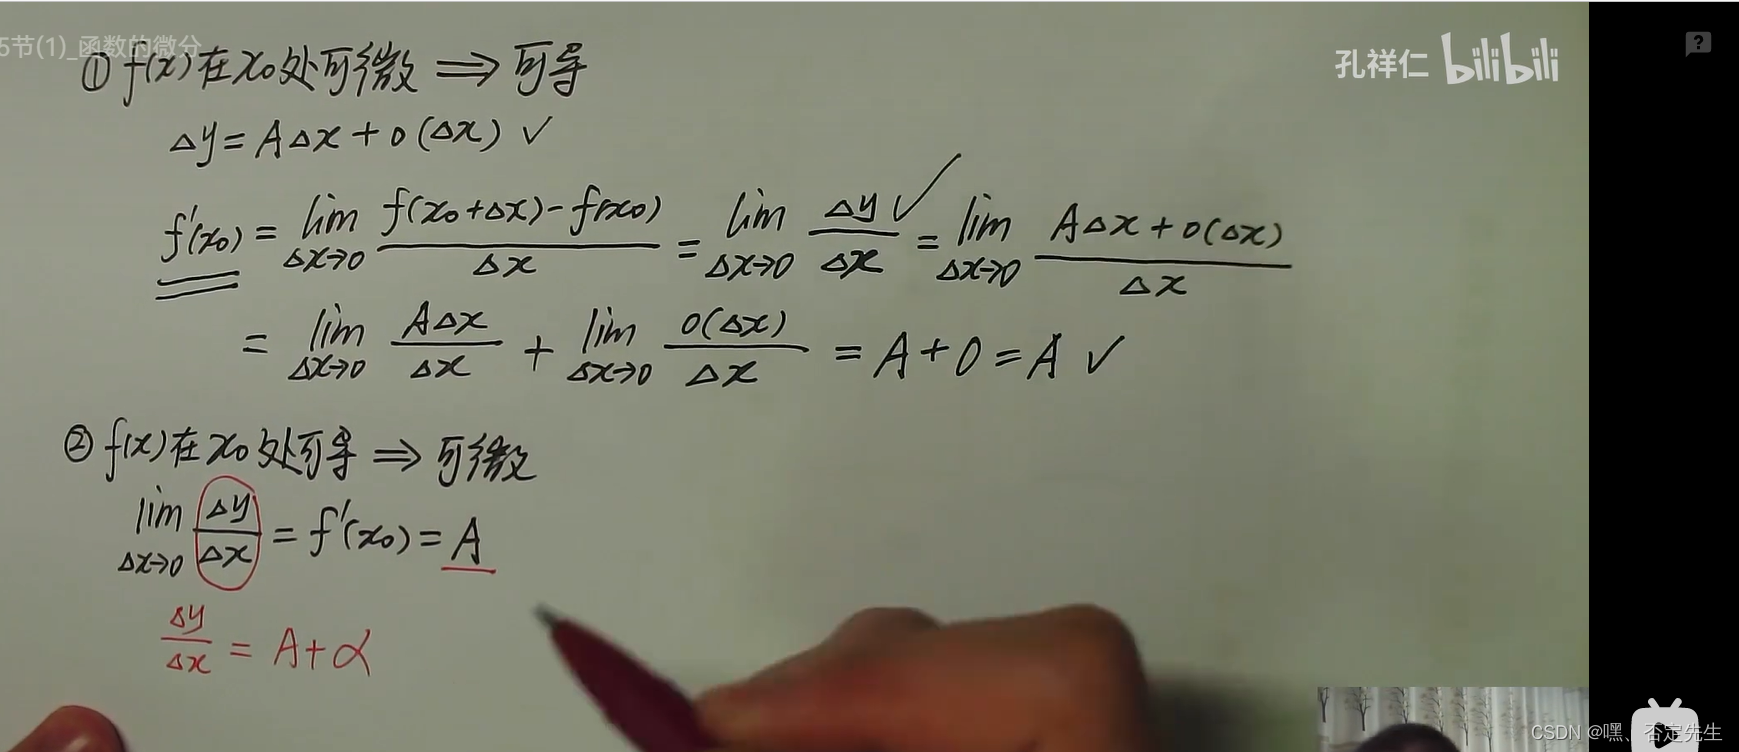 5节(1)_函数的微分
孔祥仁 bilibili
① f(x)在x₀处可微 ⟹ 可导
Δy = AΔx + o(Δx) ✓
f'(x₀) = lim Δx→0 f(x₀+Δx)-f(x₀) / Δx = lim Δx→0 Δy / Δx ✓ = lim Δx→0 AΔx + o(Δx) / Δx
= lim Δx→0 AΔx / Δx + lim Δx→0 o(Δx) / Δx = A + 0 = A ✓
② f(x)在x₀处可导 ⟹ 可微
lim Δx→0 Δy / Δx = f'(x₀) = A
Δy / Δx = A + α
CSDN @嘿、否定先生